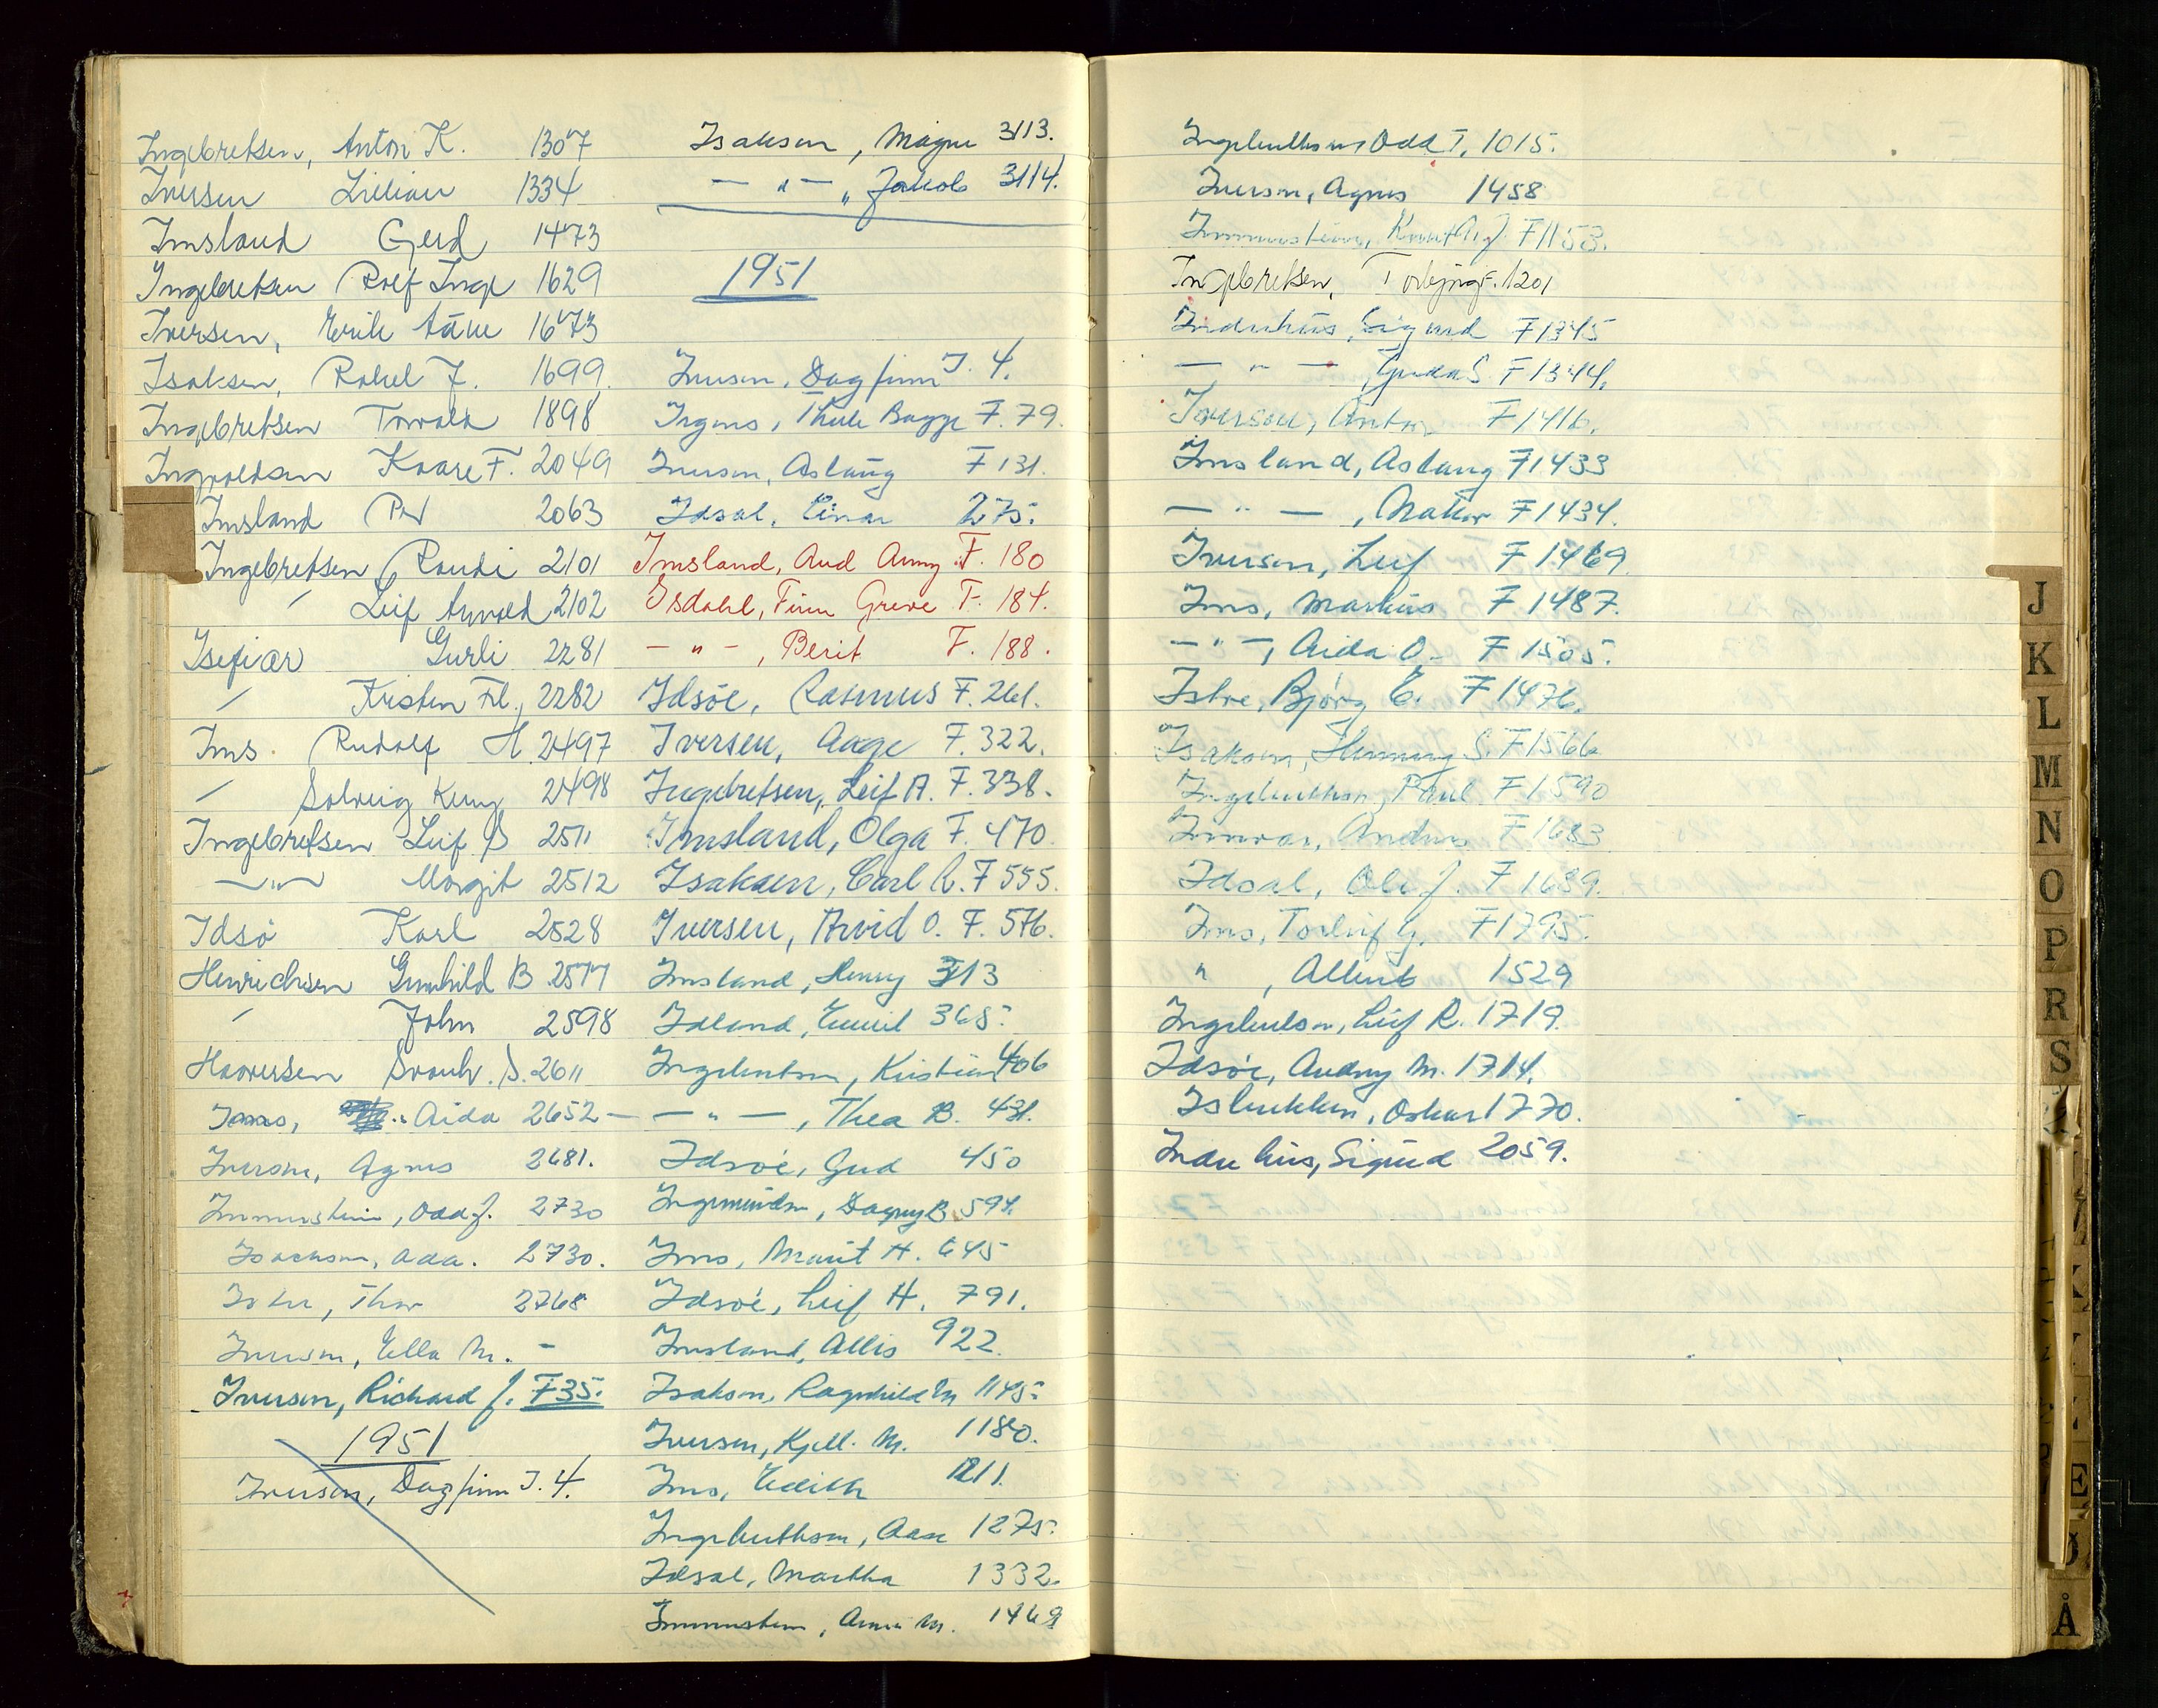 Ingebretsen, Anton K. 1307
Iversen Lillian 1334
Imsland Gerd 1473
Ingebretsen Rolf Inge 1629
Iversen, Erik Aane 1673
Isaksen, Rakel J. 1699.
Ingebretsen Torvald 1898
Ingvoldsen Kaare F. 2049
Imsland Per 2063
Ingebretsen Randi 2101
Leif Arnold 2102
Isefiær Gurli 2281
Kristen Fl. 2282
Ims. Rudolf H. 2497
Solveig Keny 2498
Ingebretsen Leif S 2511
—"— Margit 2512
Idsø Karl 2528
Henrichsen Gunhild B 2577
John 2598
Haaversen S. 2611
Ims, Aida 2652 —
Iversen, Agnes 2681.
Immerstein, Odd J. 2730
Isachsen, Ada. 2730.
Istre, Thor 2768
Iversen, Ella M. -
Iversen, Richard J. F35.
1951
Iversen, Dagfinn I. 4.
Isaksen, Magne 3113.
— " — „ Jakob 3114.
1951
Iversen, Dagfinn I. 4.
Irgens, Thule Bagge F. 79.
Iversen, Aslaug F 131.
Idsal, Einar 275.
Imsland, Aud Anny F. 180
Isdahl, Finn Greve F. 184.
— " —, Berit F. 188.
Idsöe, Rasmus F. 261.
Iversen, Aage F. 322.
Ingebretsen, Leif A. F. 338.
Imsland, Olga F. 470.
Isaksen, Carl R. F 555.
Iversen, Arvid O. F. 576.
Imsland, Henry 313
Idland, Emil 365.
Ingebretsen, Kristian 406
— " —, Thea B. 431.
Idsöe, Gud 450
Ingemundsen, Dagny B. 594.
Ims, Marit H. 645
Idsöe, Leif H. 791.
Imsland, Allis 922.
Isaksen, Ragnhild M 1145.
Iversen, Kjell. M. 1180.
Ims, Edith 1211.
Ingebrethsen, Aase 1275.
Idsal, Martha 1332.
Immerstein, Anna M. 1469
Ingebrethsen, Odd T. 1015.
Iversen, Agnes 1458
Immerstein, Knut A. J. F1153.
Ingebretsen, Torbjørg F. 1201
Indrehus, Sigurd F 1345
— " —, Gerda S. F 1344.
Iversen, Anton F1416.
Imsland, Aslaug F1433
— " —, Mator F 1434.
Iversen, Leif F 1469
Ims, Markus F 1487.
— " —, Aida O. F 1505.
Istre, Bjørg E. F 1476.
Isaksen, Henning S. F1566
Ingebrethsen, Paul F 1590
Immvar, Andreas F 1683
Idsal, Ole J. F 1689.
Ims, Torleif G. F1795.
" , Allent 1529
Ingebretsen, Leif R. 1719.
Idsöe, Audny M. 1714.
Isbrekken, Oskar 1770.
Indrehus, Sigurd 2059.
J
K
L
M
N
O
P
R
S
E
Å